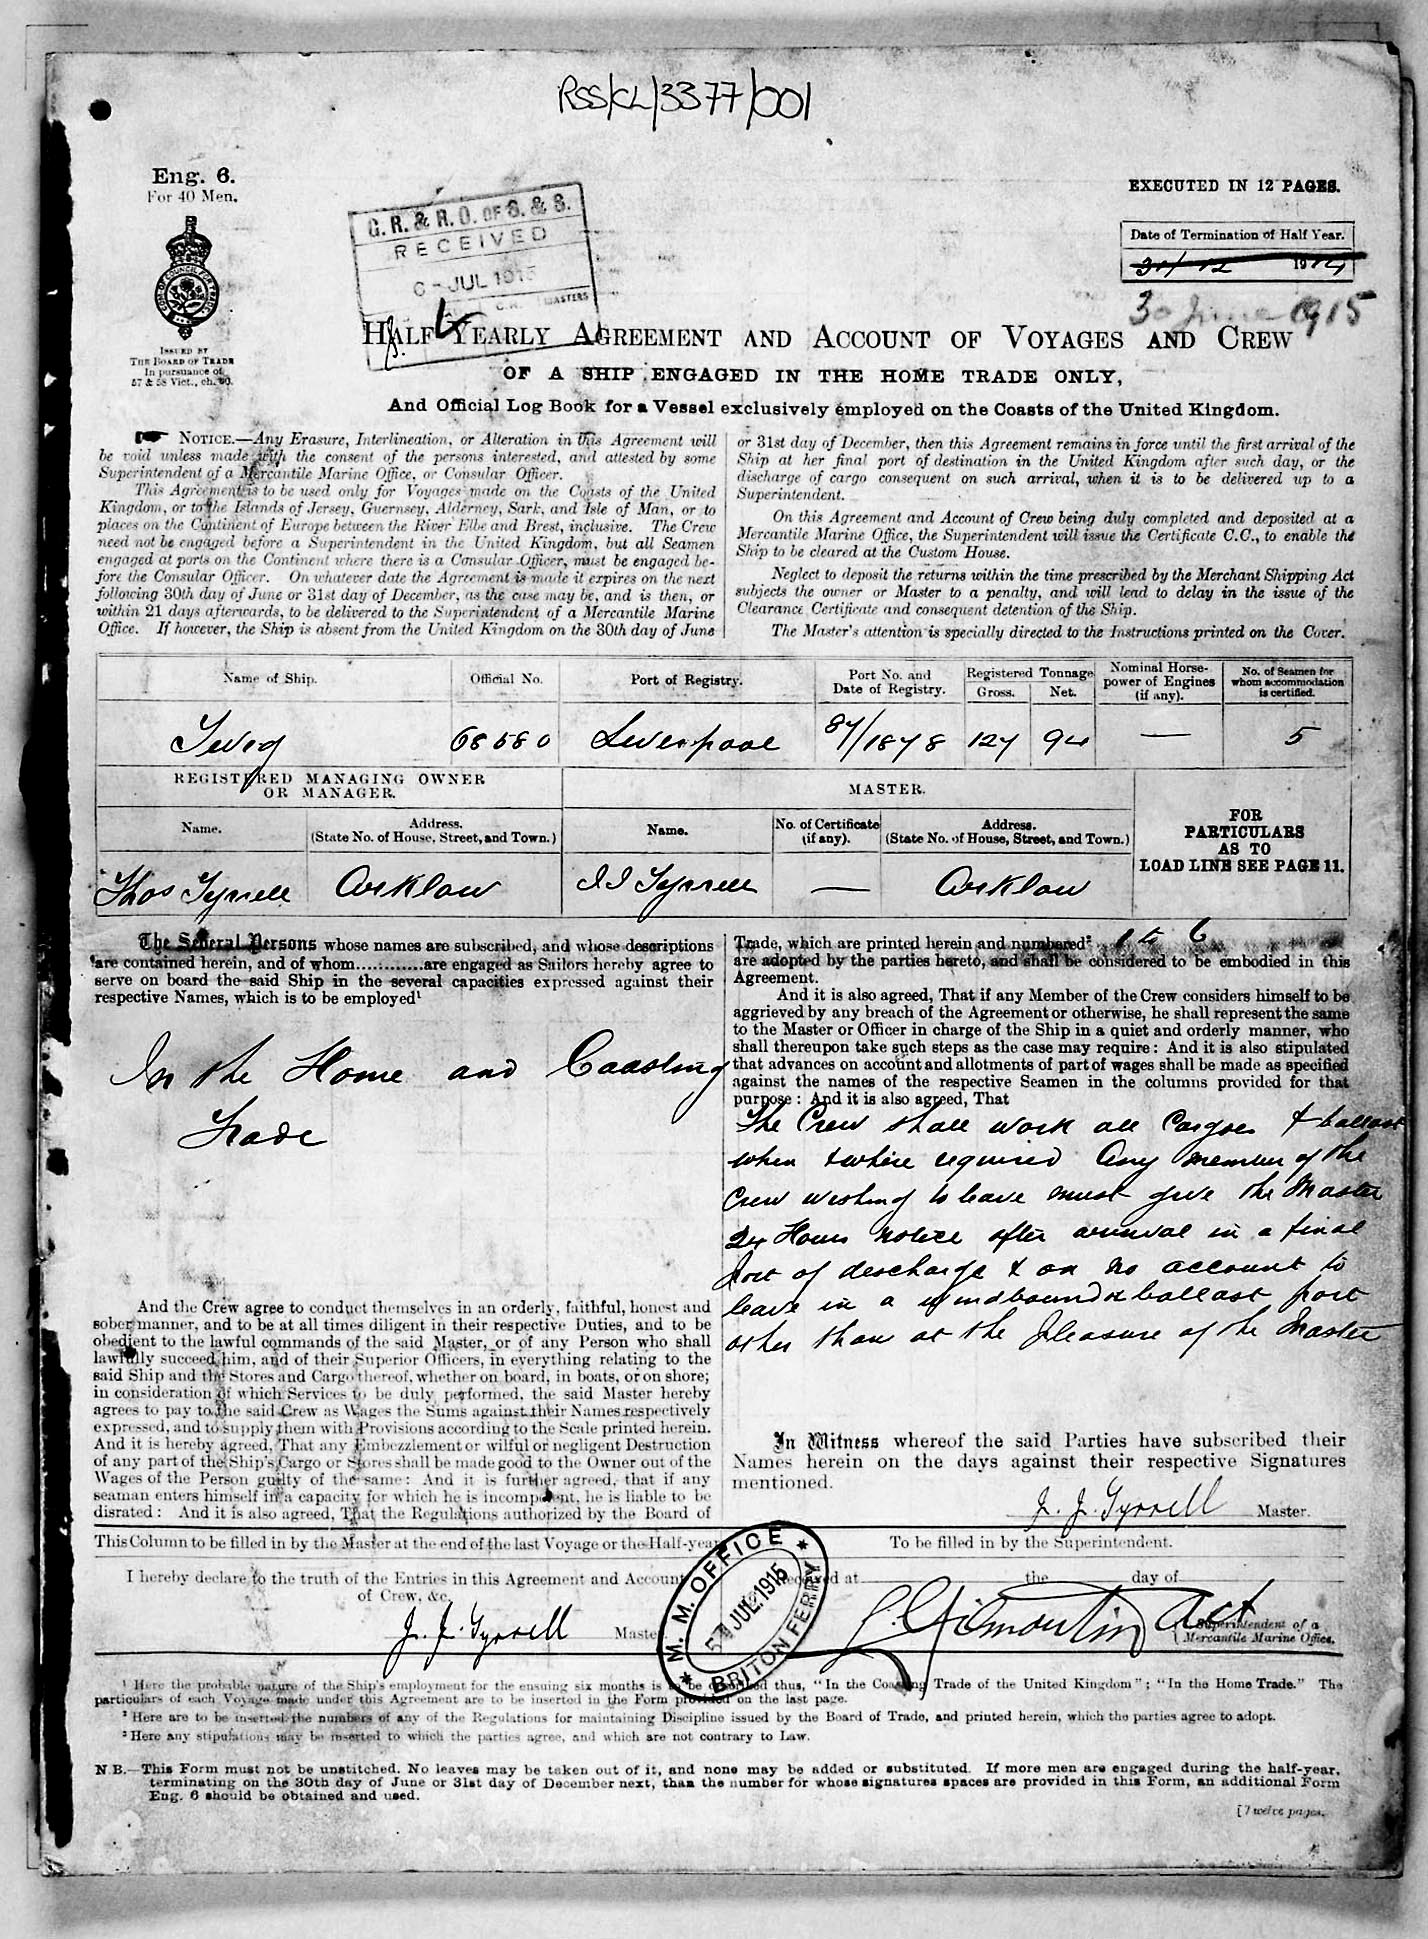 RSS/CL/3377/001
Eng. 6.
For 40 Men.
ISSUED BY
THE BOARD OF TRADE
In pursuance of
57 & 58 Vict., ch. 60.
G. R. & R. O. OF S. & S.
RECEIVED
6 - JUL 1915
MASTERS
EXECUTED IN 12 PAGES.
Date of Termination of Half Year.
31/12 1914
30 June 1915
HALF YEARLY AGREEMENT AND ACCOUNT OF VOYAGES AND CREW
OF A SHIP ENGAGED IN THE HOME TRADE ONLY,
And Official Log Book for a Vessel exclusively employed on the Coasts of the United Kingdom.
NOTICE.—Any Erasure, Interlineation, or Alteration in this Agreement will
be void unless made with the consent of the persons interested, and attested by some
Superintendent of a Mercantile Marine Office, or Consular Officer.
This Agreement is to be used only for Voyages made on the Coasts of the United
Kingdom, or to the Islands of Jersey, Guernsey, Alderney, Sark, and Isle of Man, or to
places on the Continent of Europe between the River Elbe and Brest, inclusive. The Crew
need not be engaged before a Superintendent in the United Kingdom, but all Seamen
engaged at ports on the Continent where there is a Consular Officer, must be engaged be-
fore the Consular Officer. On whatever date the Agreement is made it expires on the next
following 30th day of June or 31st day of December, as the case may be, and is then, or
within 21 days afterwards, to be delivered to the Superintendent of a Mercantile Marine
Office. If however, the Ship is absent from the United Kingdom on the 30th day of June
or 31st day of December, then this Agreement remains in force until the first arrival of the
Ship at her final port of destination in the United Kingdom after such day, or the
discharge of cargo consequent on such arrival, when it is to be delivered up to a
Superintendent.
On this Agreement and Account of Crew being duly completed and deposited at a
Mercantile Marine Office, the Superintendent will issue the Certificate C.C., to enable the
Ship to be cleared at the Custom House.
Neglect to deposit the returns within the time prescribed by the Merchant Shipping Act
subjects the owner or Master to a penalty, and will lead to delay in the issue of the
Clearance Certificate and consequent detention of the Ship.
The Master's attention is specially directed to the Instructions printed on the Cover.
Name of Ship. Official No. Port of Registry. Port No. and Date of Registry. Registered Tonnage Gross. Net. Nominal Horse-power of Engines (if any). No. of Seamen for whom accommodation is certified.
Twig 68580 Liverpool 87/1878 127 94 — 5
REGISTERED MANAGING OWNER
OR MANAGER.
MASTER.
Name. Address. (State No. of House, Street, and Town.) Name. No. of Certificate (if any). Address. (State No. of House, Street, and Town.)
FOR
PARTICULARS
AS TO
LOAD LINE SEE PAGE 11.
Thos Tyrrell Arklow J J Tyrrell — Arklow
The Several Persons whose names are subscribed, and whose descriptions
are contained herein, and of whom............are engaged as Sailors hereby agree to
serve on board the said Ship in the several capacities expressed against their
respective Names, which is to be employed¹
In the Home and Coasting
Trade
And the Crew agree to conduct themselves in an orderly, faithful, honest and
sober manner, and to be at all times diligent in their respective Duties, and to be
obedient to the lawful commands of the said Master, or of any Person who shall
lawfully succeed him, and of their Superior Officers, in everything relating to the
said Ship and the Stores and Cargo thereof, whether on board, in boats, or on shore;
in consideration of which Services to be duly performed, the said Master hereby
agrees to pay to the said Crew as Wages the Sums against their Names respectively
expressed, and to supply them with Provisions according to the Scale printed herein.
And it is hereby agreed, That any Embezzlement or wilful or negligent Destruction
of any part of the Ship's Cargo or Stores shall be made good to the Owner out of the
Wages of the Person guilty of the same: And it is further agreed, that if any
seaman enters himself in a capacity for which he is incompetent, he is liable to be
disrated: And it is also agreed, That the Regulations authorized by the Board of
Trade, which are printed herein and numbered² 1 to 6
are adopted by the parties hereto, and shall be considered to be embodied in this
Agreement.
And it is also agreed, That if any Member of the Crew considers himself to be
aggrieved by any breach of the Agreement or otherwise, he shall represent the same
to the Master or Officer in charge of the Ship in a quiet and orderly manner, who
shall thereupon take such steps as the case may require: And it is also stipulated
that advances on account and allotments of part of wages shall be made as specified
against the names of the respective Seamen in the columns provided for that
purpose: And it is also agreed, That
The Crew shall work all Cargoes & ballast
when & where required Any member of the
Crew wishing to leave must give the Master
24 Hours notice after arrival in a final
port of discharge & on no account to
leave in a windbound or ballast port
other than at the pleasure of the Master
In Witness whereof the said Parties have subscribed their
Names herein on the days against their respective Signatures
mentioned.
J. J. Tyrrell Master.
This Column to be filled in by the Master at the end of the last Voyage or the Half-year.
To be filled in by the Superintendent.
I hereby declare to the truth of the Entries in this Agreement and Account
of Crew, &c.
J. J. Tyrrell Master
M. M. OFFICE
5 JUL. 1915
BRITON FERRY
Received at the day of
Act
Superintendent of a
Mercantile Marine Office.
¹ Here the probable nature of the Ship's employment for the ensuing six months is to be described thus, "In the Coasting Trade of the United Kingdom"; "In the Home Trade." The
particulars of each Voyage made under this Agreement are to be inserted in the Form provided on the last page.
² Here are to be inserted the numbers of any of the Regulations for maintaining Discipline issued by the Board of Trade, and printed herein, which the parties agree to adopt.
³ Here any stipulations may be inserted to which the parties agree, and which are not contrary to Law.
N.B.—This Form must not be unstitched. No leaves may be taken out of it, and none may be added or substituted. If more men are engaged during the half-year,
terminating on the 30th day of June or 31st day of December next, than the number for whose signatures spaces are provided in this Form, an additional Form
Eng. 6 should be obtained and used.
[Twelve pages.